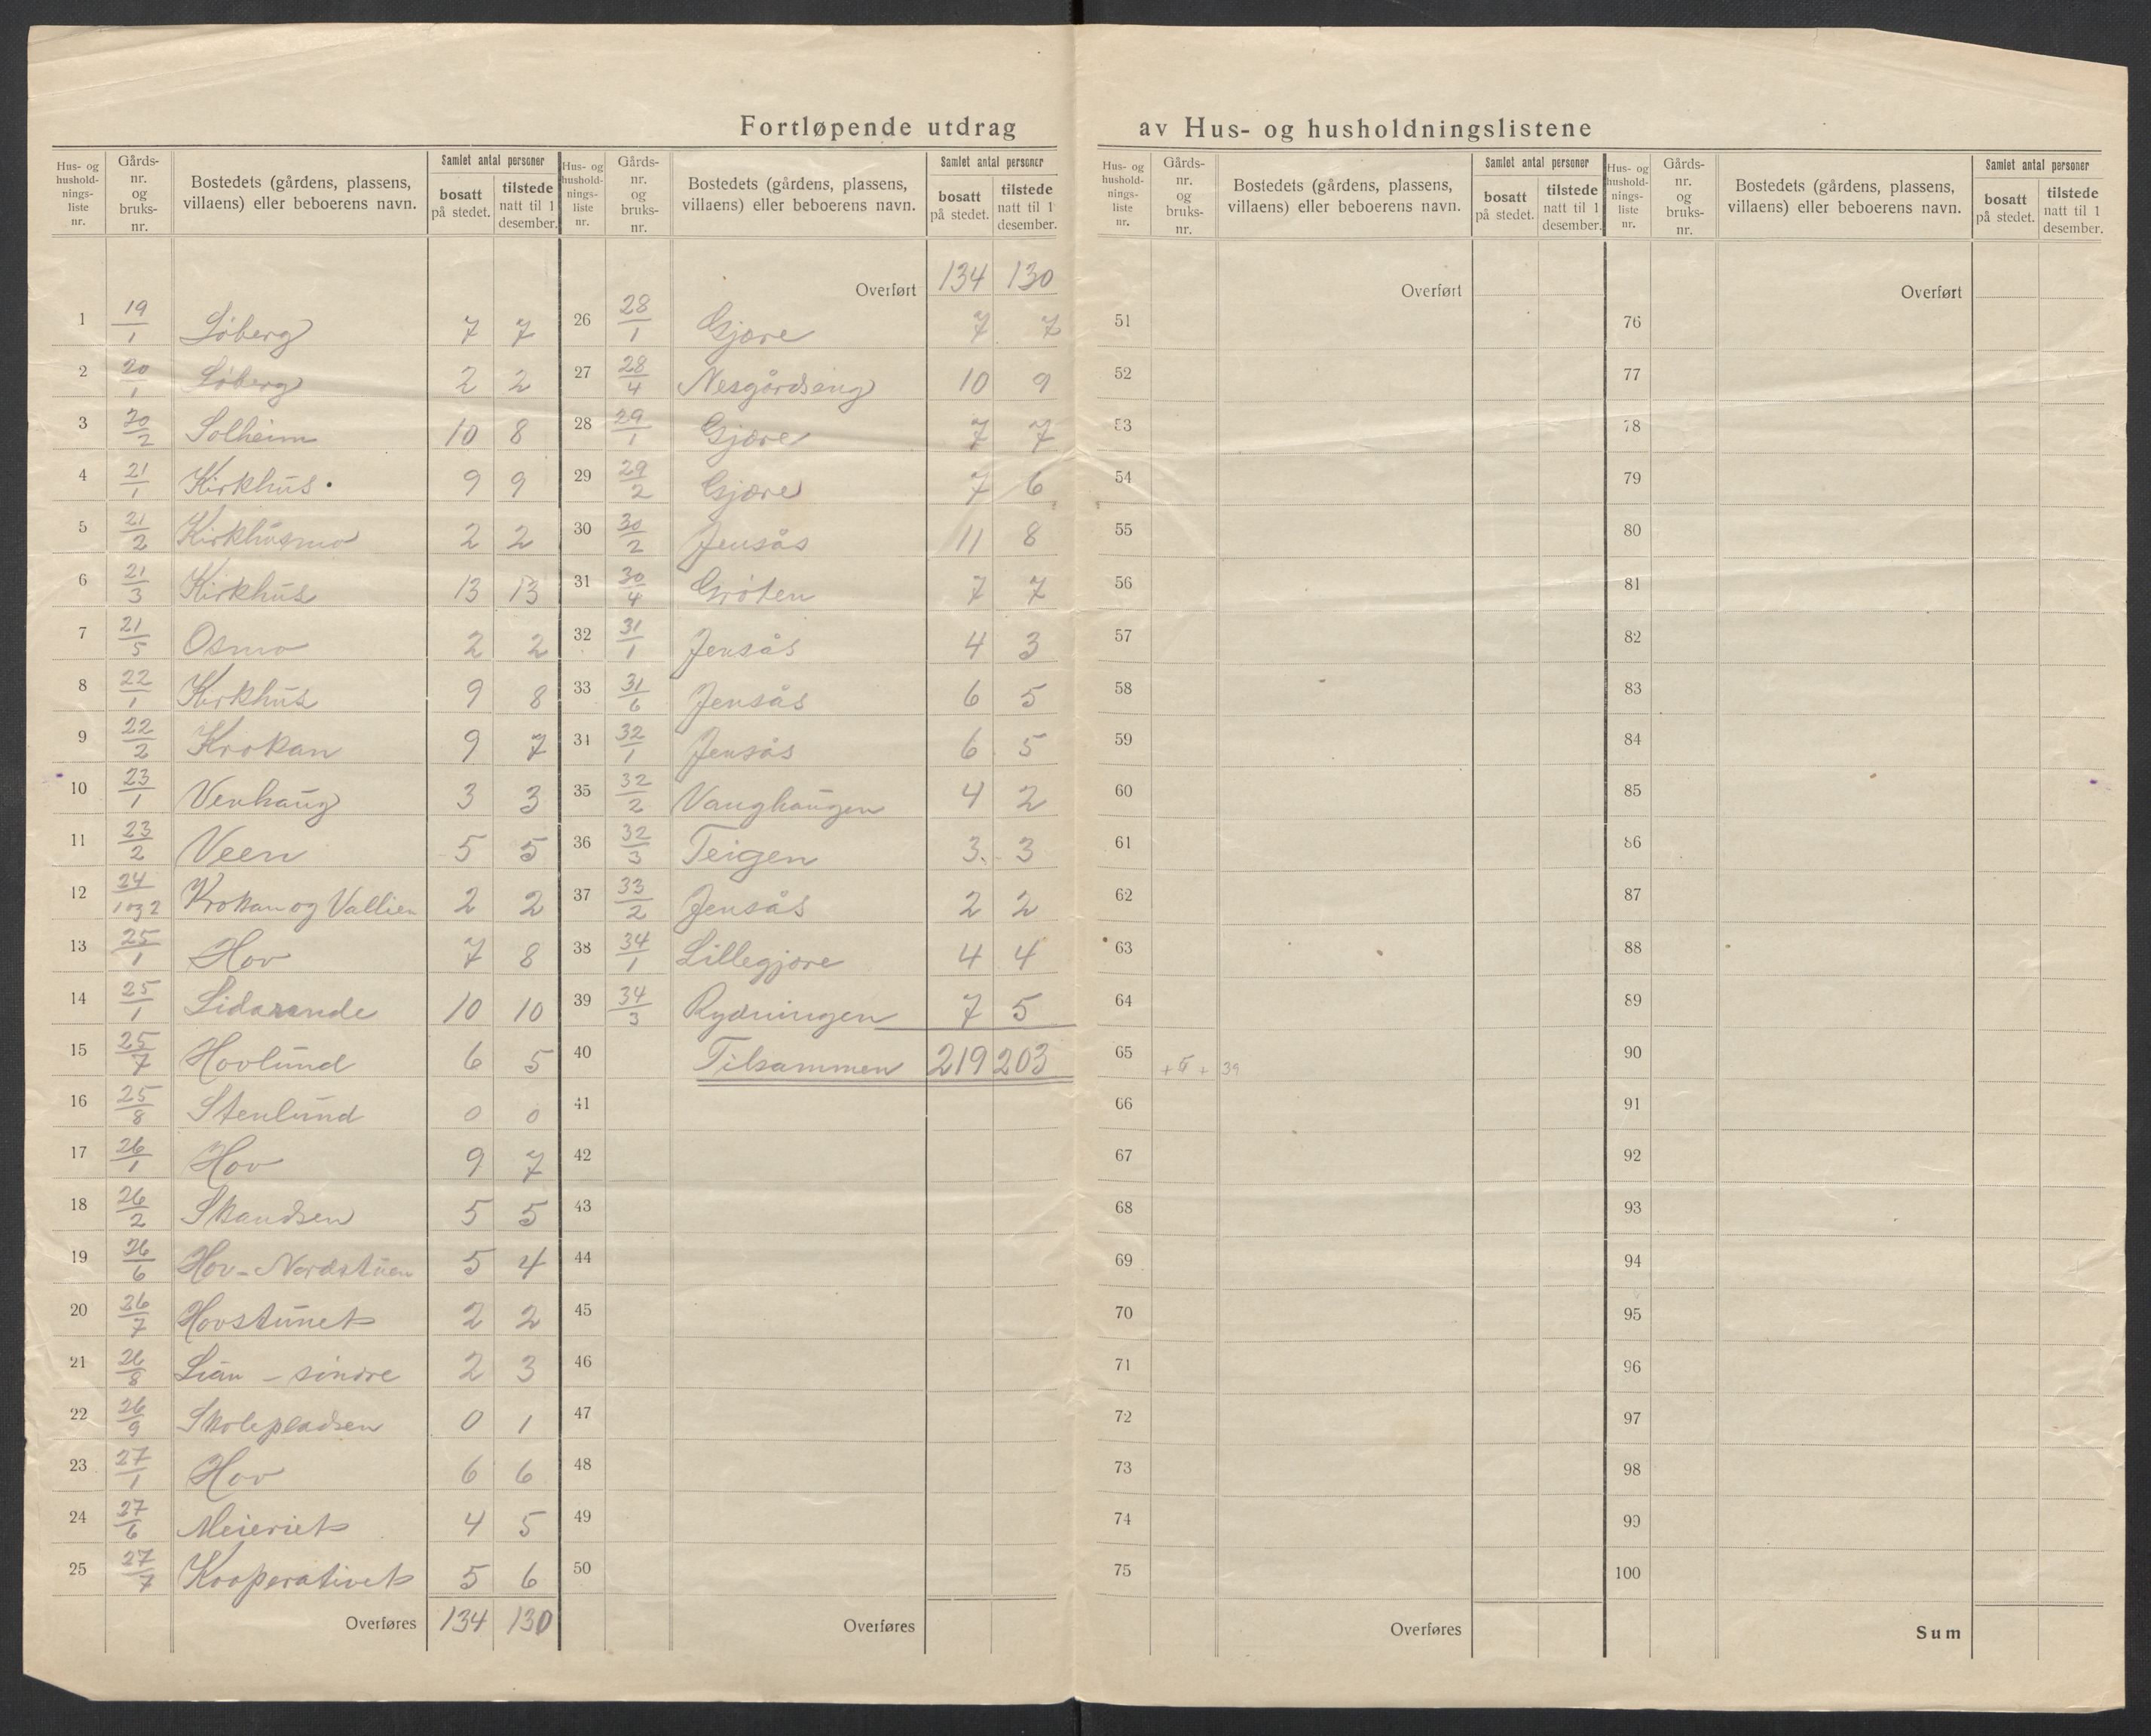 Fortløpende utdrag av Hus- og husholdningslistene
Hus- og husholdnings-liste nr. | Gårds-nr. og bruks-nr. | Bostedets (gårdens, plassens, villaens) eller beboerens navn. | Samlet antal personer bosatt på stedet. | tilstede natt til 1 desember.
1 19/1 Løberg 7 7
2 20/1 Løberg 2 2
3 20/2 Solheim 10 8
4 21/1 Kirkhus 9 9
5 21/2 Kirkhusmo 2 2
6 21/3 Kirkhus 13 13
7 21/5 Osmo 2 2
8 22/1 Kirkhus 9 8
9 22/2 Krokan 9 7
10 23/1 Venhaug 3 3
11 23/2 Veen 5 5
12 24/1 og 2 Krokan og Vallien 2 2
13 25/1 Hov 7 8
14 25/1 Lidarende 10 10
15 25/7 Hovlund 6 5
16 25/8 Stenlund 0 0
17 26/1 Hov 9 7
18 26/2 Skandsen 5 5
19 26/6 Hov-Nordstuen 5 4
20 26/7 Hovstunet 2 2
21 26/8 Lian - sindre 2 3
22 26/9 Skolepladsen 0 1
23 27/1 Hov 6 6
24 27/6 Meieriet 4 5
25 27/7 Kooperativet 5 6
Overføres 134 130
Hus- og husholdnings-liste nr. | Gårds-nr. og bruks-nr. | Bostedets (gårdens, plassens, villaens) eller beboerens navn. | Samlet antal personer bosatt på stedet. | tilstede natt til 1 desember.
Overført 134 130
26 28/1 Gjøre 7 7
27 28/4 Nesgårdseng 10 9
28 29/1 Gjøre 7 7
29 29/2 Gjøre 7 6
30 30/2 Jensås 11 8
31 30/4 Grøten 7 7
32 31/1 Jensås 4 3
33 31/6 Jensås 6 5
34 32/1 Jensås 6 5
35 32/2 Vanghaugen 4 2
36 32/3 Teigen 3 3
37 33/2 Jensås 2 2
38 34/1 Lillegjøre 4 4
39 34/3 Rydningen 7 5
40 Tilsammen 219 203
41
42
43
44
45
46
47
48
49
50
Overføres
Hus- og husholdnings-liste nr. | Gårds-nr. og bruks-nr. | Bostedets (gårdens, plassens, villaens) eller beboerens navn. | Samlet antal personer bosatt på stedet. | tilstede natt til 1 desember.
Overført
51
52
53
54
55
56
57
58
59
60
61
62
63
64
65 39
66
67
68
69
70
71
72
73
74
75
Overføres
Hus- og husholdnings-liste nr. | Gårds-nr. og bruks-nr. | Bostedets (gårdens, plassens, villaens) eller beboerens navn. | Samlet antal personer bosatt på stedet. | tilstede natt til 1 desember.
Overført
76
77
78
79
80
81
82
83
84
85
86
87
88
89
90
91
92
93
94
95
96
97
98
99
100
Sum